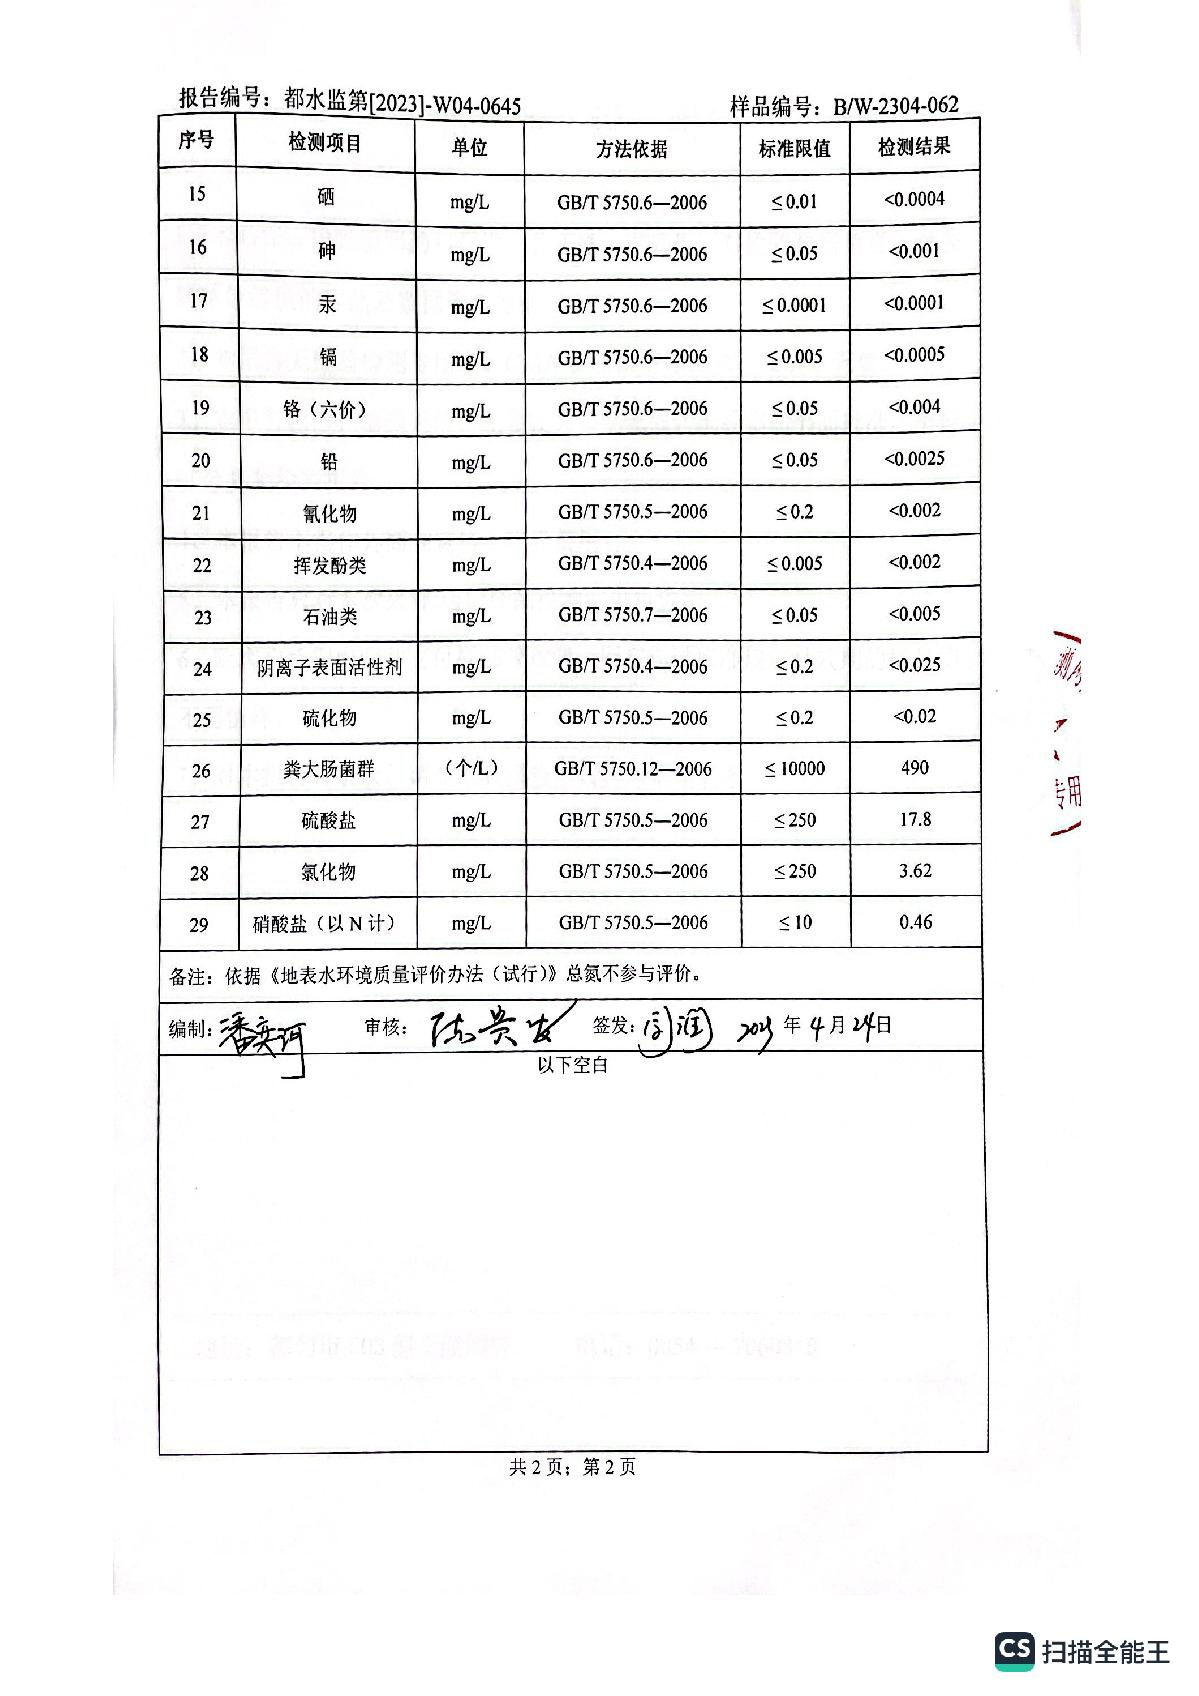 报告编号：都水监第[2023]-W04-0645 样品编号：B/W-2304-062
序号 检测项目 单位 方法依据 标准限值 检测结果
15 硒 mg/L GB/T 5750.6—2006 ≤0.01 <0.0004
16 砷 mg/L GB/T 5750.6—2006 ≤0.05 <0.001
17 汞 mg/L GB/T 5750.6—2006 ≤0.0001 <0.0001
18 镉 mg/L GB/T 5750.6—2006 ≤0.005 <0.0005
19 铬（六价） mg/L GB/T 5750.6—2006 ≤0.05 <0.004
20 铅 mg/L GB/T 5750.6—2006 ≤0.05 <0.0025
21 氰化物 mg/L GB/T 5750.5—2006 ≤0.2 <0.002
22 挥发酚类 mg/L GB/T 5750.4—2006 ≤0.005 <0.002
23 石油类 mg/L GB/T 5750.7—2006 ≤0.05 <0.005
24 阴离子表面活性剂 mg/L GB/T 5750.4—2006 ≤0.2 <0.025
25 硫化物 mg/L GB/T 5750.5—2006 ≤0.2 <0.02
26 粪大肠菌群 （个/L） GB/T 5750.12—2006 ≤10000 490
27 硫酸盐 mg/L GB/T 5750.5—2006 ≤250 17.8
28 氯化物 mg/L GB/T 5750.5—2006 ≤250 3.62
29 硝酸盐（以N计） mg/L GB/T 5750.5—2006 ≤10 0.46
备注：依据《地表水环境质量评价办法（试行）》总氮不参与评价。
编制： 审核： 签发： 2023 年 4 月 24 日
以下空白
共2页；第2页
专用
CS 扫描全能王